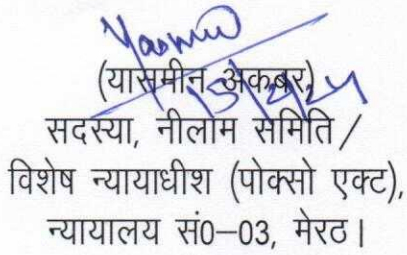 Yasmin
(यासमीन अकबर)
15/2/24
सदस्या, नीलाम समिति /
विशेष न्यायाधीश (पोक्सो एक्ट),
न्यायालय सं0–03, मेरठ।